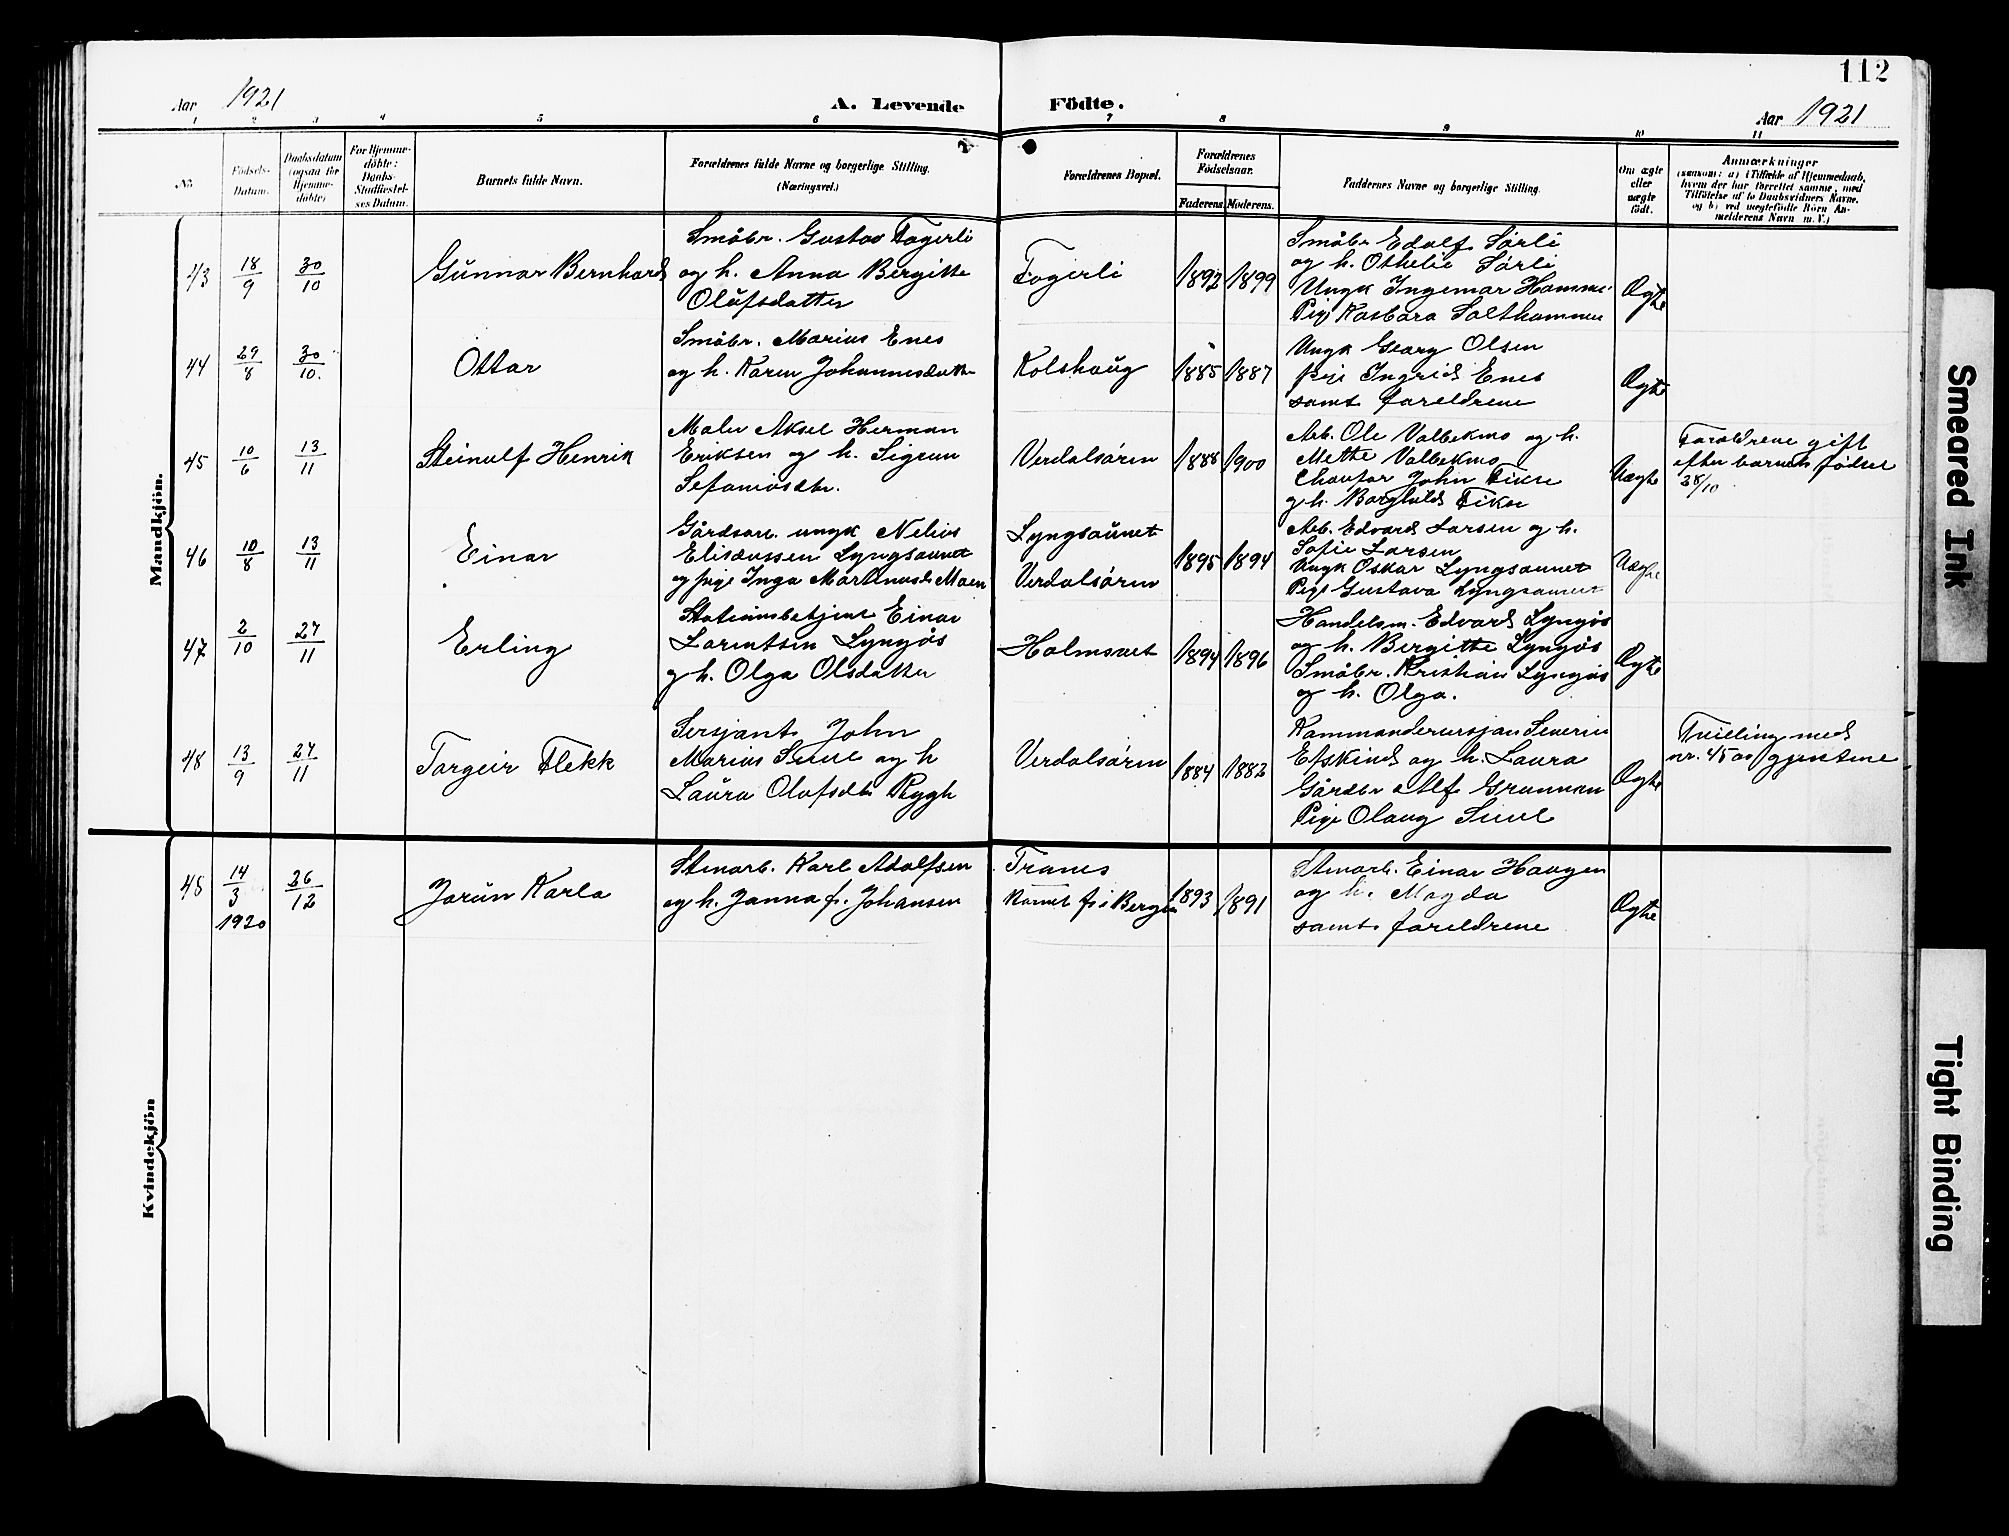 112
Aar 1921
A. Levende Födte.
Aar 1921
1 2 3 4 5 6 7 8 9 10 11
No.
Födsels-
Datum.
Daabsdatum
(ogsaa för
Hjemme-
döbte)
For Hjemme-
döbte:
Daabs-
Stadfæstel-
ses Datum.
Barnets fulde Navn.
Forældrenes fulde Navne og borgerlige Stilling.
(Næringsvei.)
Forældrenes Bopæl.
Forældrenes
Födselsaar.
Faderens. Moderens.
Faddernes Navne og borgerlige Stilling.
Om ægte
eller
uægte
födt.
Anmærkninger
(saasom: a) i Tilfælde af Hjemmedaab,
hvem der har forrettet samme, med
Tilföielse af to Daabsvidners Navne,
og b) ved uægtefödte Börn An-
melderens Navn m. V.)
Mandkjön.
43
18/9
30/10
Gunnar Bernhard
Småbr. Gustav Fagerli
og h. Anna Bergitte
Olufsdatter
Fagerli
1892 1899
Småbr Edolf Sørli
og h. Othelie Sørli
Ungk Ingemar Hamme
Pige Kasbara Salthammer
Ægte
44
29/8
30/10.
Ottar
Småbr. Marius Enes
og h. Karen Johannesdatter
Kolshaug
1885 1887
Ungk Georg Olsen
pige Ingrid Enes
samt foreldrene
Ægte
45
10/6
13/11
Steinulf Henrik
Maler Aksel Herman
Eriksen og h. Sigrun
Sefaniasdtr.
Verdalsøren
1888 1900
Arb. Ole Valbekmo og h.
Mette Valbekmo
Chaufør John Fikse
og h. Borghild Fikse
Uægte
Foreldrene gift
efter barnets fødsel
28/10
46
10/8
13/11
Einar
Gårdsarb. ungk Nelius
Elisæussen Lyngsaunet
og pige Inga Martinusd. Moen
Lyngsaunet
Verdalsøren
1895 1894
Arb. Edvard Larsen og h.
Sofie Larsen
Ungk Oskar Lyngsaunet
Pige Gustava Lyngsaunet
Uægte
47
2/10
27/11
Erling
Stationsbetjent Einar
Lorentsen Lyngås
og h. Olga Olsdatter
Holmsvet
1894 1896
Handelsm. Edvard Lyngås
og h. Bergitte Lyngås
Småbr. Kristian Lyngås
og h. Olga.
Ægte
48
13/9
27/11
Torgeir Flekk
Sersjant John
Marius Suul og h
Laura Olafsdtr Rygh
Verdalsøren
1884 1882
Kommandersersjan Severin
Efskind og h. Laura
Gårdbr Alf Grunnan
Pige Olaug Suul
Ægte
Tvilling med
nr. 45 av gjentene
Kvindekjön
48
14/3
1920
26/12
Jorun Karla
Stenarb. Karl Adolfsen
og h. Janna f. Johansen
Tranes
Kommet fra Bergen
1893 1891
Stenarb. Einar Haugen
og h. Magda
samt foreldrene
Ægte
Smeared Ink
Tight Binding